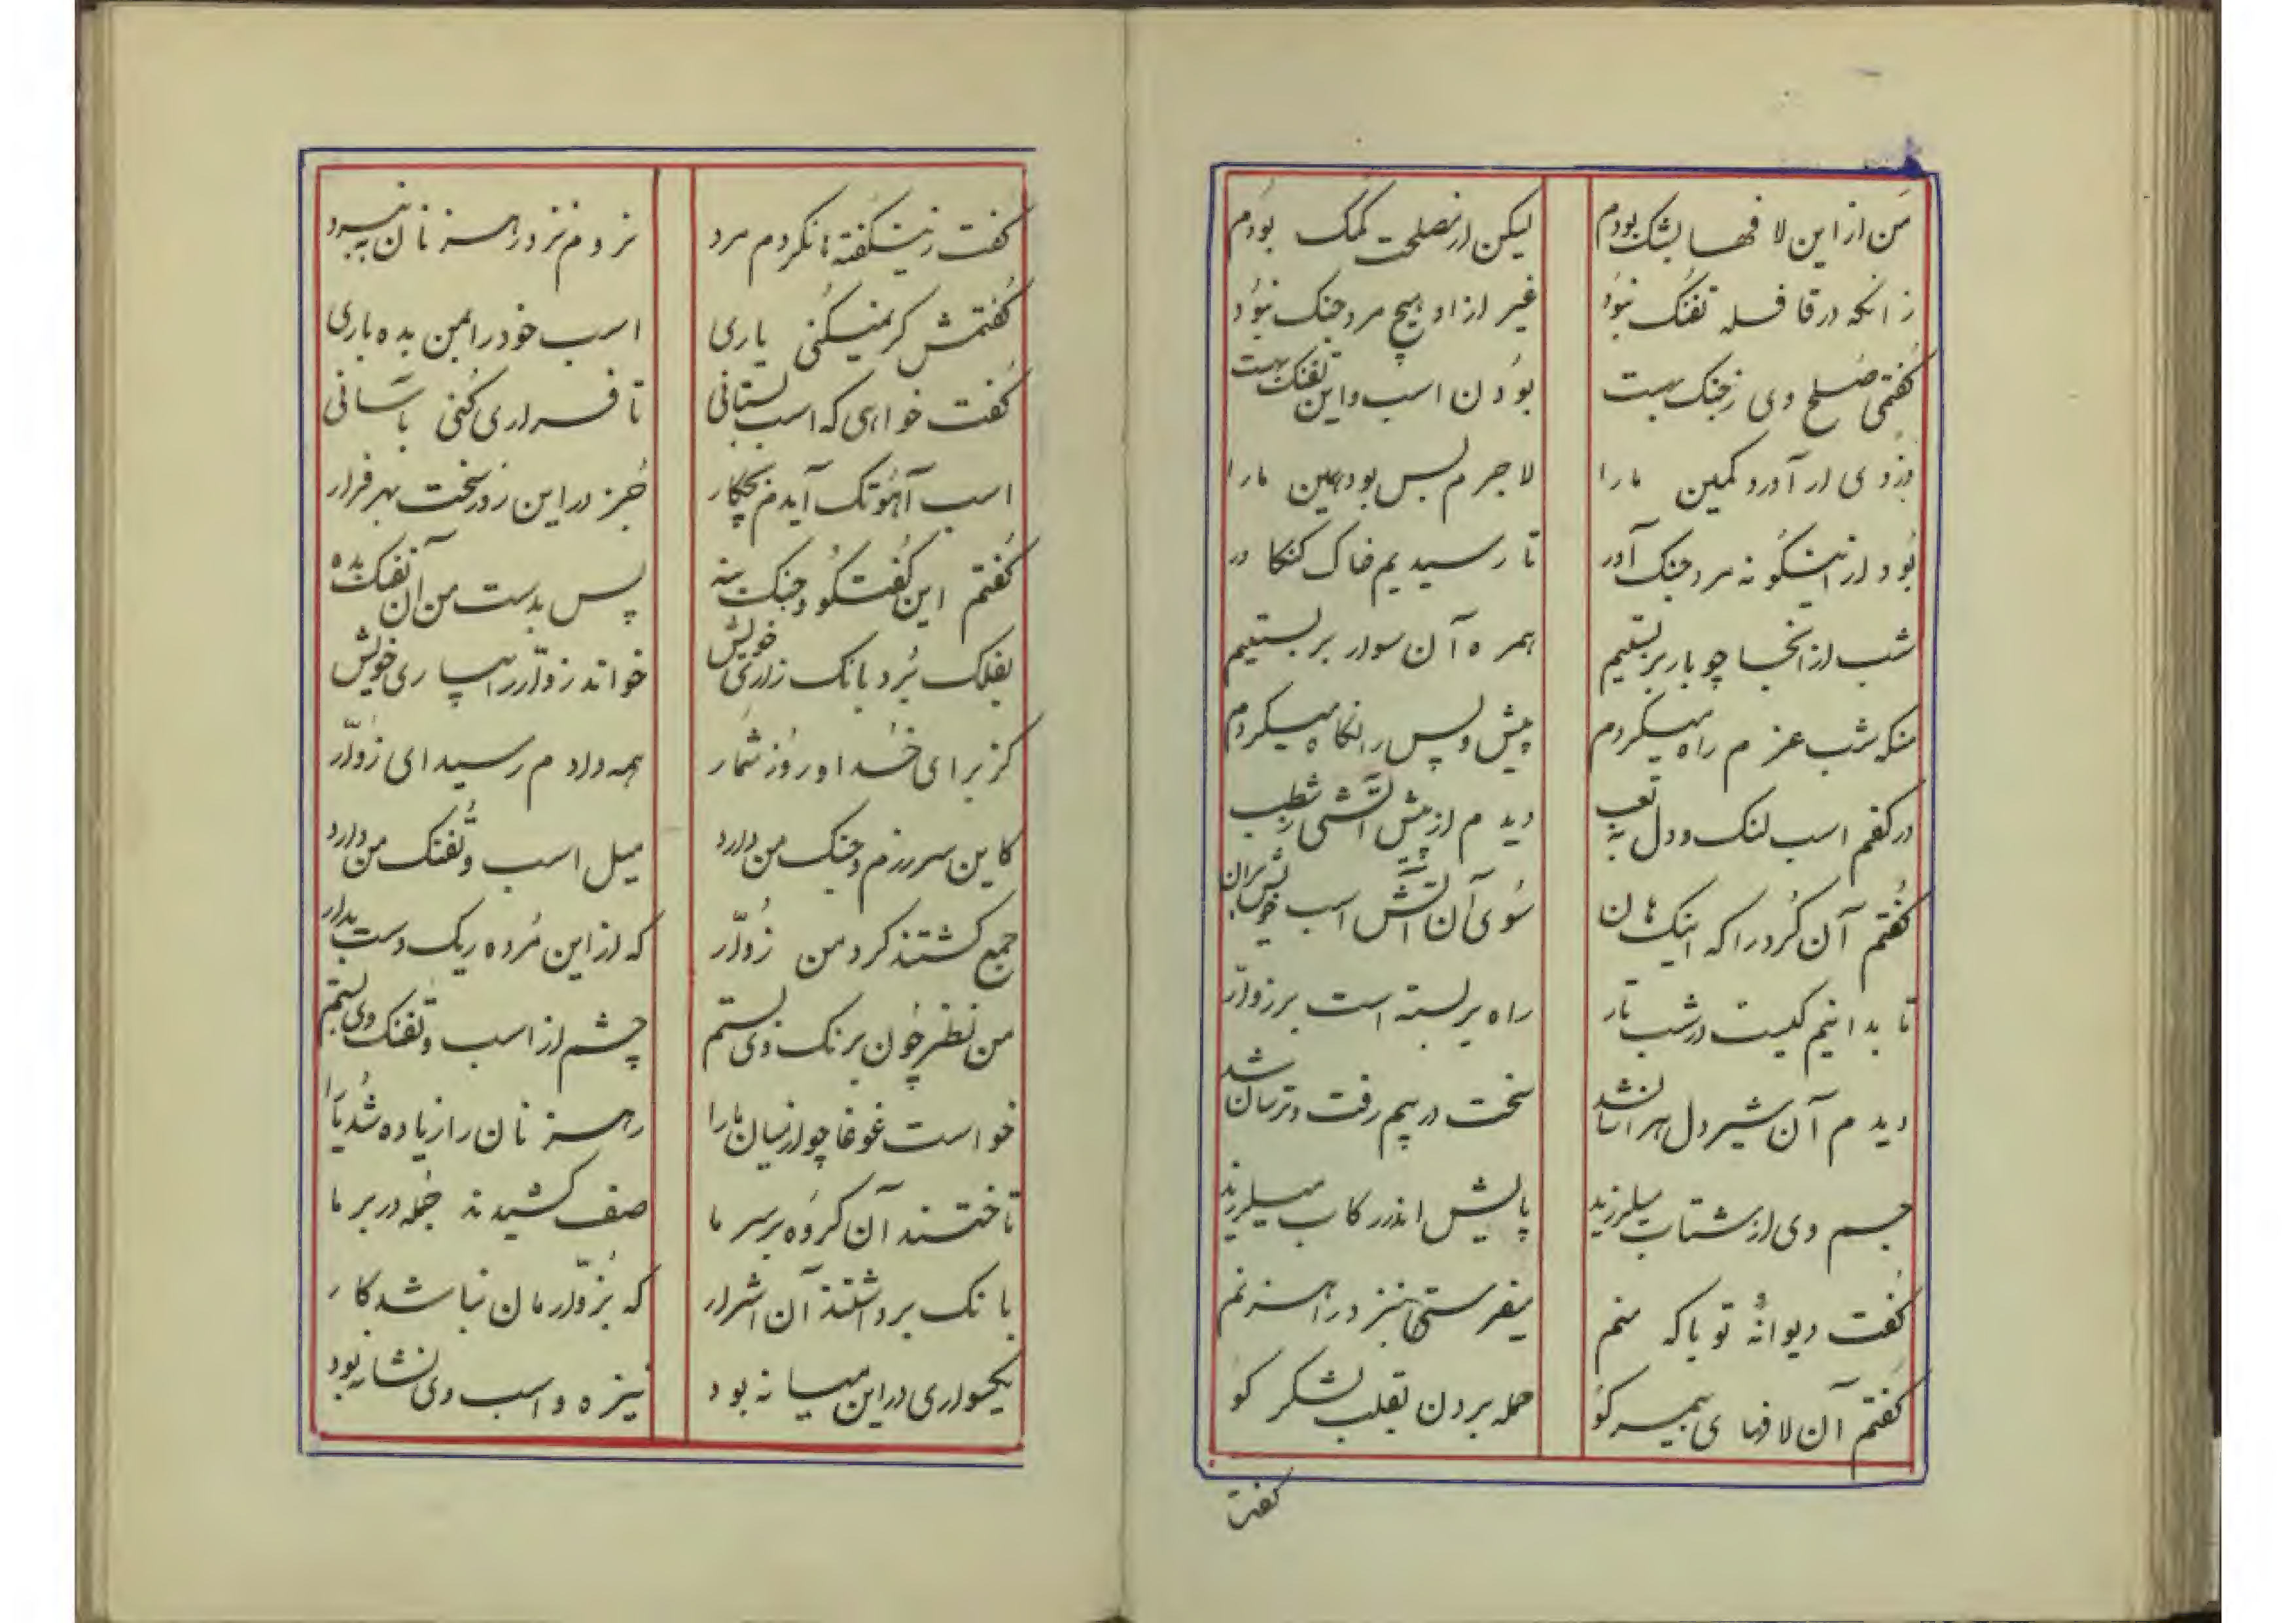 من از این لافها بشک بودم
لیکن از مصلحت کمک بودم
زانکه در قافله تفنگ نبود
غیر از او هیچ مرد جنگ نبود
گفتمی صلح وی ز جنک بهست
بودن اسب و این تفنک بهست
دزدی ار آورد کمین مارا
لاجرم بس بود همین مارا
بود از اینگونه مرد جنک آور
تا رسیدیم خاک کنکاور
شب از انجا چو بار بربستیم
همره آن سوار بر بستیم
منکه شب عزم راه میکردم
پیش و پس را نگاه میکردم
در کفم اسب لنک و دل به تعب
دیدم از پیش آتشی بشب
گفتم آن کرد را که اینک هان
سوی آن آتش اسب خویش بران
تا بدانیم کیست در شب تار
راه بر بسته است بر زوّار
دیدم آن شیر دل هراسان شد
سخت در بیم رفت و ترسان شد
جسم وی از شتاب میلرزید
پایش اندر رکاب میلرزید
گفت دیوانهٔ تو یا که منم
بفرستی بنزد راهزنم
گفتم آن لافهای بیمر کو
حمله بردن بقلب لشکر کو
گفت
گفت زینگفته ها نکردم مرد
نروم نزد رهزنان نبرد
گفتمش گر نمیکنی یاری
اسب خود را بمن بده باری
گفت خواهی که اسب بستانی
تا فراری کنی بآسانی
اسب آهو تک آیدم بچکار
جز در این روز سخت بهر فرار
گفتم این گفتگو و جنک بنه
پس بدست من آن تفنک بده
بفلک برد بانک زاری خویش
خواند زوّار را بیاری خویش
کز برای خدا و روز شمار
همه دادم رسید ای زوّار
کاین سر رزم و جنک من دارد
میل اسب و تفنک من دارد
جمع گشتند گرد من زوّار
که از این مرده ریک دست بدار
من نظر چون بر نک وی بستم
چشم از اسب و تفنک وی بستم
خواست غوغا چو از میان مارا
رهزنان را زیاده شد یارا
تاختند آن گروه بر سر ما
صف کشیدند جمله در بر ما
بانک برداشتند آن اشرار
که بزوّارمان نباشد کار
یکسواری در این میانه بود
نیزه و اسب وی نشانه بود